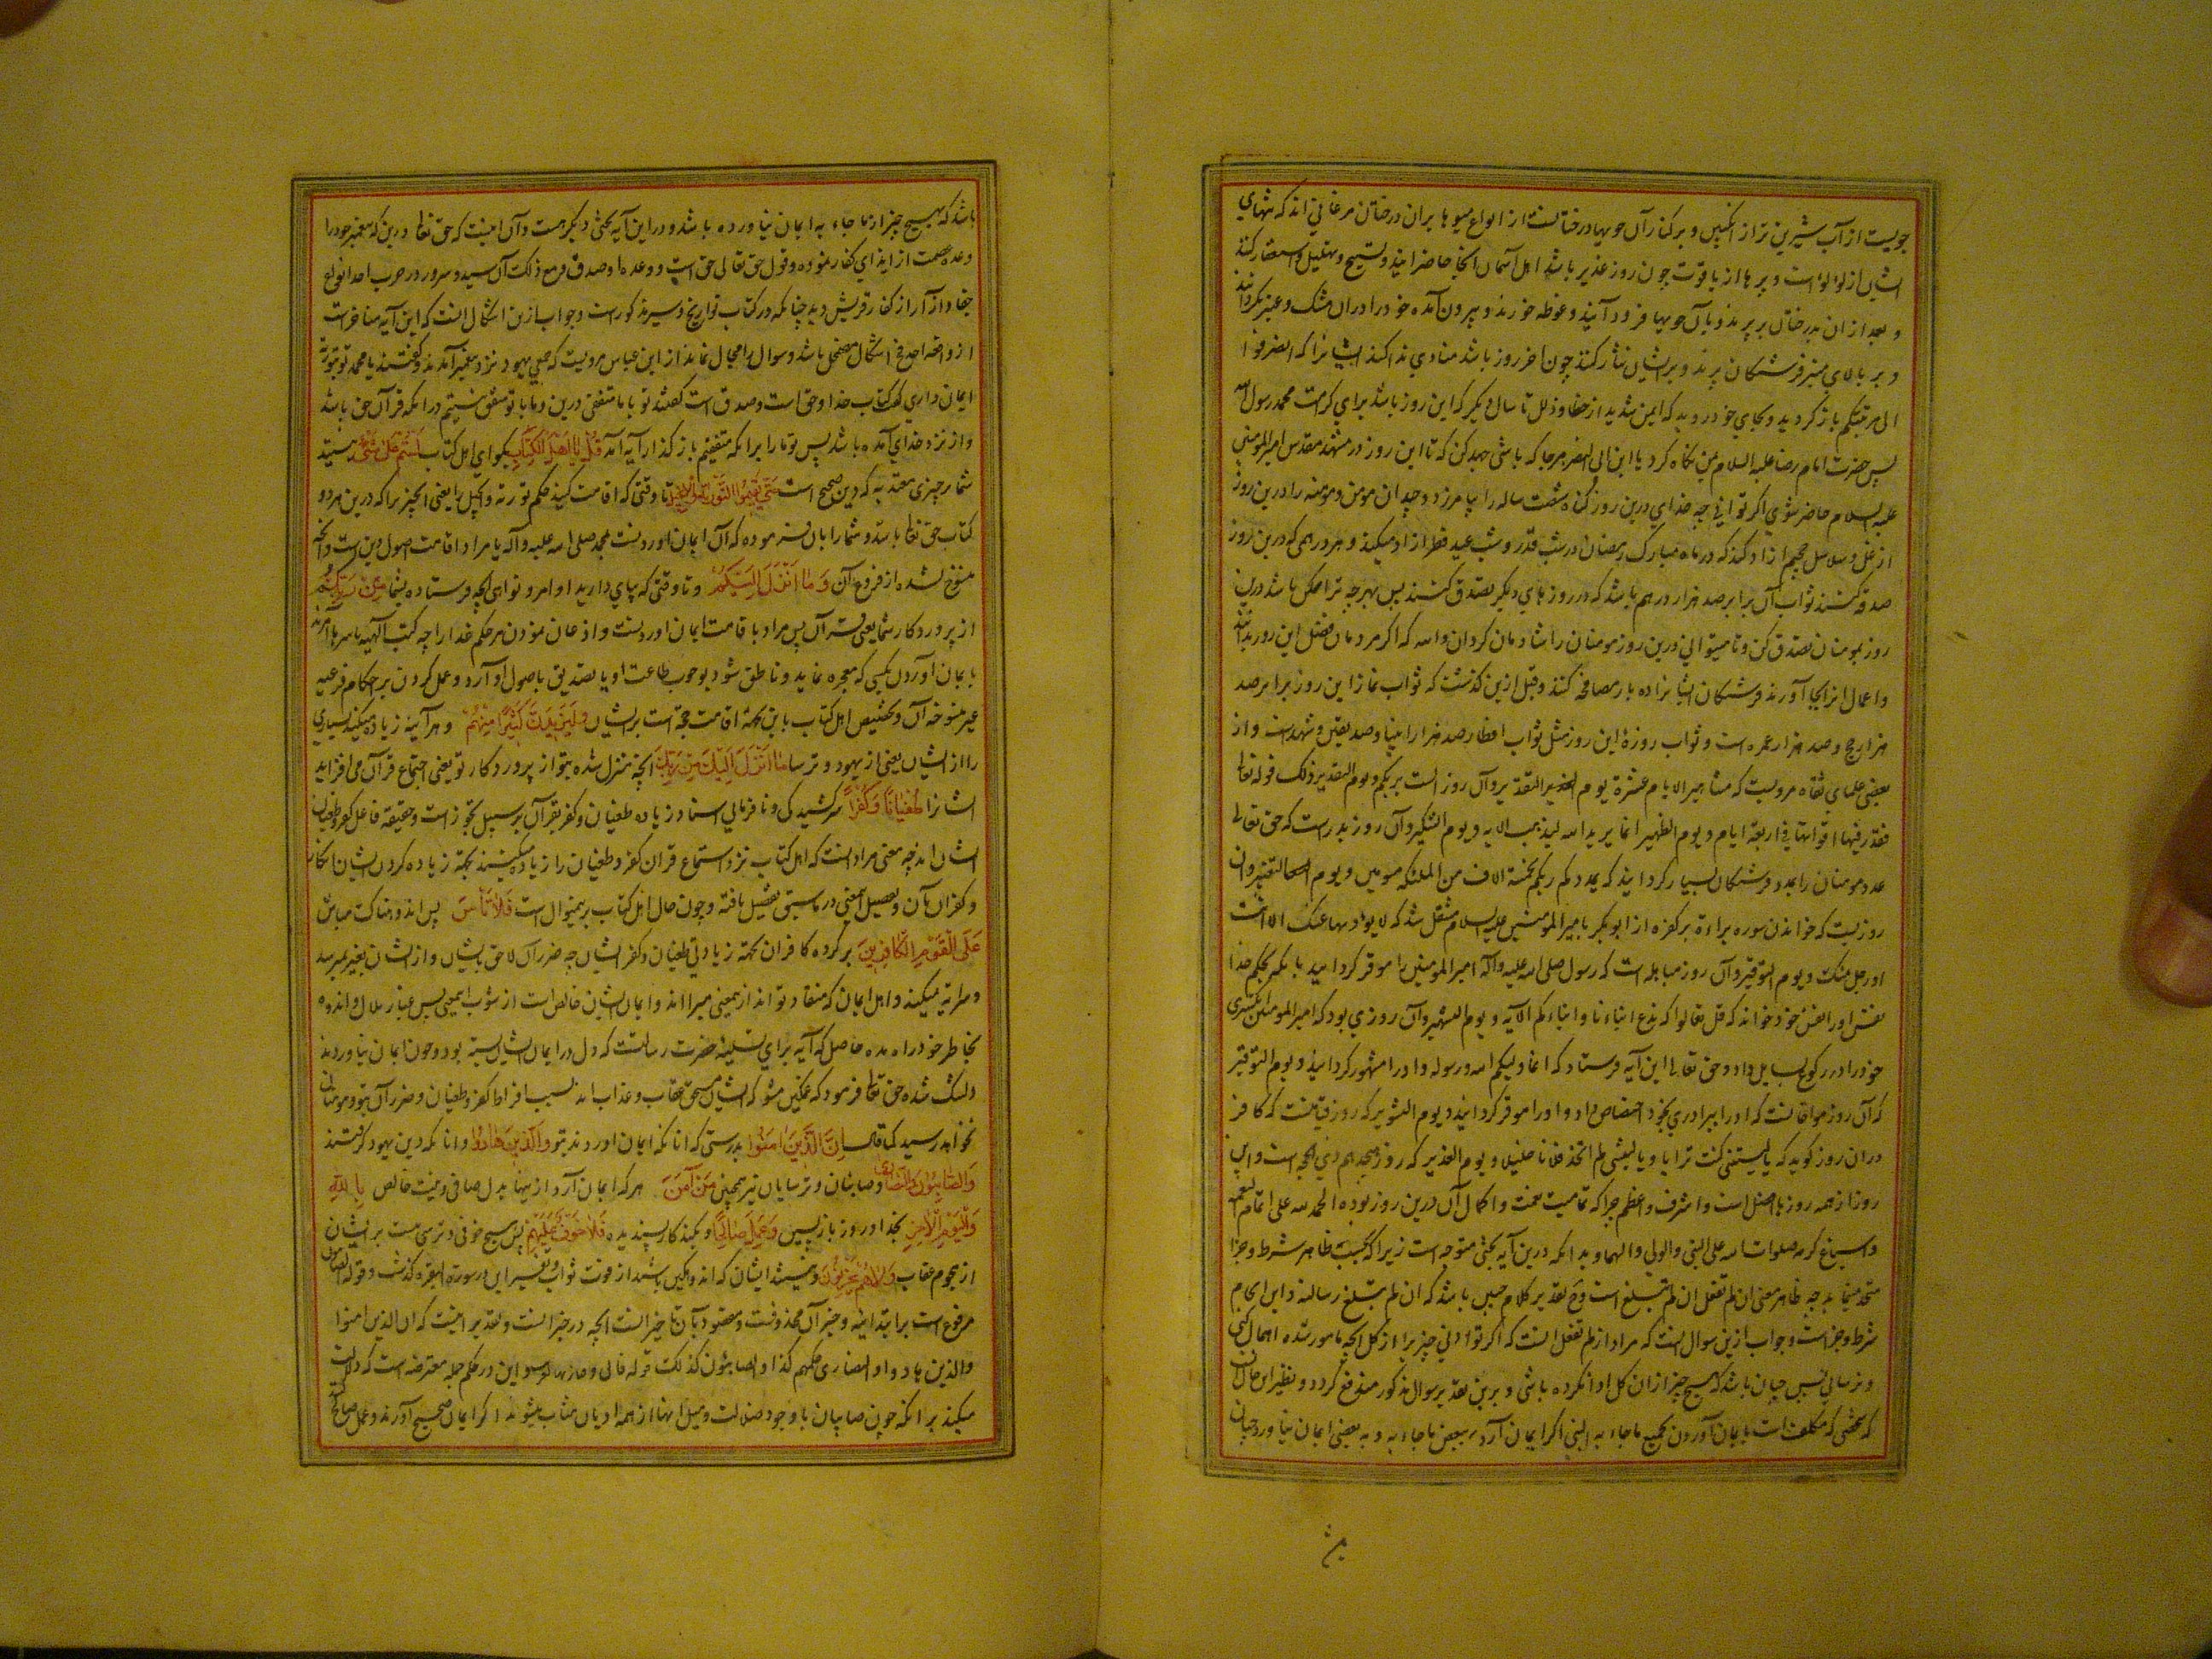 جویست از آب شیرین تر از انگبین و بر کنار آن جویها درختانست از انواع میوها بر آن درختان مرغانی اند که تنهای
ایشان از لؤلؤ است و پرها از یاقوت چون روز غدیر باشد اهل آسمان آنجا حاضر آیند و تسبیح و تهلیل و استغفار کنند
و بعد از ان بدرختان بر پرند و بآن جویها فرود آیند و غوطه خورند و بیرون آمده خود را در ان مشک و عنبر بگردانند
و بر بالای سر فرشتگان پرند و بر ایشان نثار کنند چون آخر روز باشد منادی ندا کند ایشانرا که انصرفوا
الی مراتبکم باز گردید و بجای خود روید که ایمن شدید از خطا و زلل تا سال دیگر که این روز باشد برای کرامت محمد رسول الله
پس حضرت امام رضا علیه السلام بمن نگاه کرد یا ابن ابی النصر هر جا که باشی جهد کن که تا این روز در مشهد مقدس امیرالمؤمنین
علیه السلام حاضر شوی اگر توانی چه خدای درین روز گناه شصت ساله را بیامرزد و چندان مؤمن و مؤمنه را درین روز
از غل و سلاسل جحیم آزاد کند که در ماه مبارک رمضان و در شب قدر و شب عید فطر آزاد میکند و هر درهمی که درین روز
صدقه کنند ثواب آن برابر صد هزار درهم باشد که در روزهای دیگر تصدق کنند پس بهر چه ترا ممکن باشد درین
روز بمومنان تصدق کن و تا میتوانی درین روز مومنان را شادمان گردان والله که اگر مردمان فضل این روز بدانند
و اعمال انرا بجا آورند فرشتگان ایشانرا ده بار مصافحه کنند و قبل ازین گذشت که ثواب نماز این روز برابر صد
هزار حج و صد هزار عمره است و ثواب روزهٔ این روز مثل ثواب افطار صد هزار انبیا و صدیقین و شهداست و از
بعضی علمای ثقاه مرویست که مشاهیر الایام عشرة یوم التقدیر و آن روز الست بربکم و یوم التقدیر ذلک قوله تعالی
فقدر فیها اقواتها فی اربعة ایام و یوم التطهیر انما یرید الله لیذهب الایه و یوم التکثیر و آن روز بدرست که حق تعالی
عدد مومنان را بعدد فرشتگان بسیار گردانید که یمددکم ربکم بخمسة الاف من الملائکه مسومین و یوم التغییر و ان
روزیست که خواندن سوره براءة بر کفره از ابوبکر بامیر المؤمنین علیه السلام منتقل شد که لا یؤدیها عنک الا انت
او رجل منک و یوم التوقیر و آن روز مباهله است که رسول صلی الله علیه و آله امیر المؤمنین را موقر گردانید بانکه بحکم خدا
نفس او را نفس خود خواند که قل تعالوا ندع ابناءنا و ابناءکم الآیه و یوم التشهیر و آن روزی بود که امیر المؤمنین انگشتری
خود را در رکوع بسایل داد و حق تعالی این آیه فرستاد که انما ولیکم الله و رسوله و او را مشهور گردانید و یوم التوقیر
که آن روز مواخاتست که او را ببرادری بخود اختصاص داد و او را موقر گردانید و یوم التشویر که روز قیامتست که کافر
در ان روز گوید که یا لیتنی کنت ترابا و یا لیتنی لم اتخذ فلانا خلیلا و یوم الغدیر که روز هیجدهم ذی الحجه است و این
روز از همه روزها افضل است و اشرف و اعظم چرا که تمامیت نعمت و اکمال آن درین روز بوده الحمد لله علی اتمام النعمه
و اسباغ کرمه صلوات الله علی النبی و الولی و آلهما و بدانکه درین آیه بحثی متوجه است زیرا که بحسب ظاهر شرط و جزا
متحد مینماید چه ظاهر معنی ان لم تفعل ان لم تبلغ است و تقدیر کلام چنین باشد که ان لم تبلغ رسالته و این اتحاد
شرط و جزاست و جواب ازین سوال انست که مراد از لم تفعل انست که اگر تو ادنی چیزی را از کل آنچه مامور شده اهمال کنی
و نرسانی پس چنان باشد که هیچ چیز از ان کل ادا نکرده باشی و برین تقدیر سوال مذکور مندفع گردد و نظیر این مثال
که شخصی که مکلف است بایمان آوردن بجمیع ما جاء به النبی اگر ایمان آرد ببعض ما جاء به و به بعضی ایمان نیاورد چنان
باشد که بهیچ چیز از ما جاء به ایمان نیاورده باشد و در این آیه بحثی دیگر هست و آن اینست که حق تعالی درین که پیغمبر خود را
وعده عصمت از ایذای کفار نموده و قول حق تعالی حق است و وعده او صدق و مع ذلک آن سید و سرور در حرب احد انواع
جفا و آزار از کفار قریش دید چنانکه در کتاب تواریخ و سیر مذکورست و جواب ازین اشکال انست که این آیه متاخرست
از واقعه احد فح اشکال مضمحل باشد و سوال را مجال نماند از ابن عباس مرویست که جمعی یهود نزد پیغمبر آمدند و گفتند یا محمد تو بتوریة
ایمان داری که کتاب خدا و حق است و صدق است گفتند تو با ما متفقی درین و ما با تو متفق نیستیم در آنکه قرآن حق باشد
و از نزد خدای آمده باشد پس تو ما را بر انکه متفقیم باز گذار آیه آمد قُلْ یا اَهْلَ الْکِتابِ بگو ای اهل کتاب لَسْتُمْ عَلی شَیْءٍ نیستید
شما بر چیزی معتد به که دین صحیح است حَتّی تُقیمُوا التَّوْریةَ وَالْاِنْجیلَ تا وقتی که اقامت کنید حکم توریة و انجیل را یعنی آنچیز را که درین هر دو
کتاب حق تعالی باشد و شما را بان فرموده که آن ایمان آوردنست بمحمد صلی الله علیه و آله یا مراد اقامت اصول دین است و آنچه
منسوخ نشده از فروع آن وَ ما اُنْزِلَ اِلَیْکُمْ و تا وقتی که بپای دارید اوامر و نواهی آنچه فرستاده بشما مِنْ رَبِّکُمْ
از پروردگار شما یعنی قرآن پس مراد باقامت ایمان آوردنست و اذعان نمودن مر حکم خدا را چه کتب الهیه باسرها آمرند
بایمان آوردن بکسی که معجزه نماید و ناطق شود بوجوب طاعت او یا تصدیق باصول او آرد و عمل کردن بر احکام فرعیه
غیر منسوخه آن و تخصیص اهل کتاب باین بجهة اقامت حجة است بر ایشان وَلَیَزیدَنَّ کَثیراً مِنْهُمْ و هر آینه زیاده میکند بسیاری
را از ایشان یعنی از یهود و ترسا ما اُنْزِلَ اِلَیْکَ مِنْ رَبِّکَ آنچه منزل شده بتو از پروردگار تو یعنی استماع قرآن می افزاید
ایشانرا طُغْیاناً وَ کُفْراً سرکشیدگی و نافرمانی اسناد زیاده طغیان و کفر بقرآن بر سبیل تجوز است و حقیقة فاعل کفر و طغیان
ایشان اند چه معنی مراد انست که اهل کتاب نزد استماع قران کفر و طغیان را زیاده میکنند بجهة زیاده کردن ایشان انکار
و کفران بآن و تفصیل این معنی در ما سبق تفصیل یافته و چون حال اهل کتاب برینمنوال است فَلا تَأْسَ پس اندوهناک مباش
عَلَی الْقَوْمِ الْکافِرینَ بر گروه کافران بجهة زیادتی طغیان و کفر ایشان چه ضرر آن لاحق بایشان و از ایشان بغیر نمیرسد
و سرایت نمیکند و اهل ایمان که منقاد تواند از ینمعنی مبرا اند و ایمان ایشان خالص است از شوب اینمعنی پس غبار ملال و اندوه
بخاطر خود راه مده حاصل که آیه برای تسلیه حضرت رسالتست که دل در ایمان ایشان بسته بود و چون ایمان نیاوردند
دلتنگ شده حق تعالی فرمود که غمگین مشو که ایشان مستحق عقاب و عذاب اند بسبب افراط کفر و طغیان و ضرر آن بتو و مومنان
نخواهد رسید کما قال اِنَّ الَّذینَ امَنُوا بدرستی که انانکه ایمان اوردند بتو وَالَّذینَ هادُوا و انانکه دین یهود گرفتند
وَالصّابِئُونَ وَالنَّصاری و صابئان و ترسایان نیز همچنین مَنْ آمَنَ هر که ایمان آرد از اینها بدل صافی و نیت خالص بِاللهِ
وَالْیَوْمِ الْاخِرِ بخدا و روز بازپسین وَ عَمِلَ صالِحاً و بکند کار پسندیده فَلا خَوْفٌ عَلَیْهِمْ پس هیچ خوفی و ترسی نیست بر ایشان
از هجوم عقاب وَلا هُمْ یَحْزَنُونَ و نیستند ایشان که اندوهگین باشند از فوت ثواب و تفسیر این در سورة البقره گذشت و قوله الصابئون
مرفوع است بر ابتدائیه و خبر آن محذوفست و مقصود بآن تاخیر است از آنچه در خبر انست و تقدیر اینست که ان الذین امنوا
والذین هادوا والنصاری حکمهم کذا و الصابئون کذلک و این در حکم جمله معترضه است که دلالت
میکند بر انکه چون صابیان با وجود ضلالت و میل اینها از همه ادیان مثاب میشوند اگر ایمان صحیح آورند و عمل صالح کنند